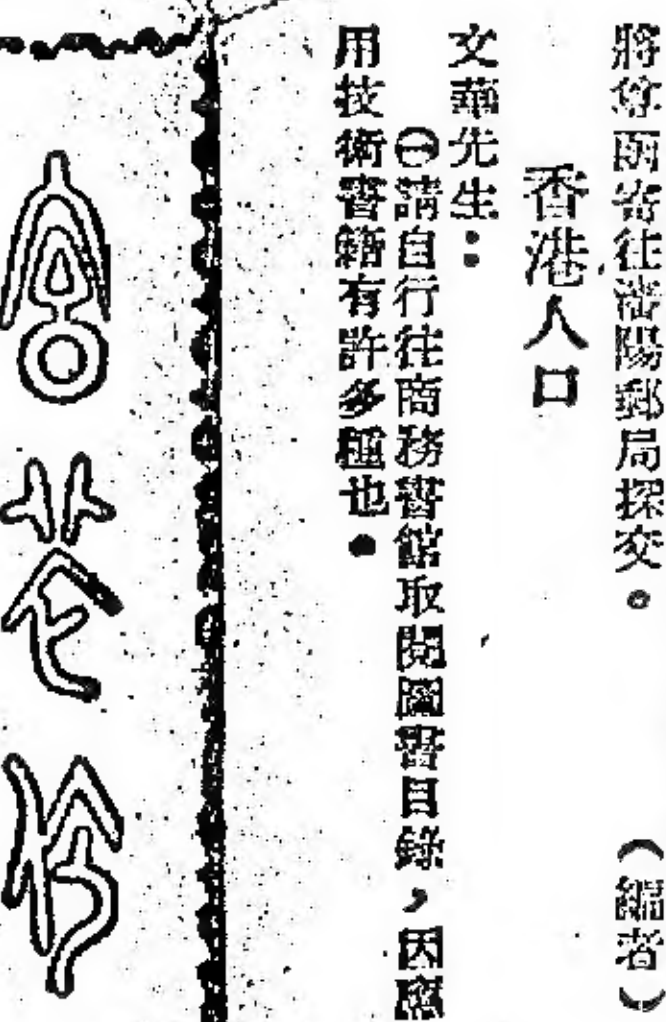 將尊函寄往瀋陽郵局探交。 (編者)
香港人口
文華先生:
㊀請自行往商務書館取閱圖書目錄,因應
用技術書籍有許多種也。